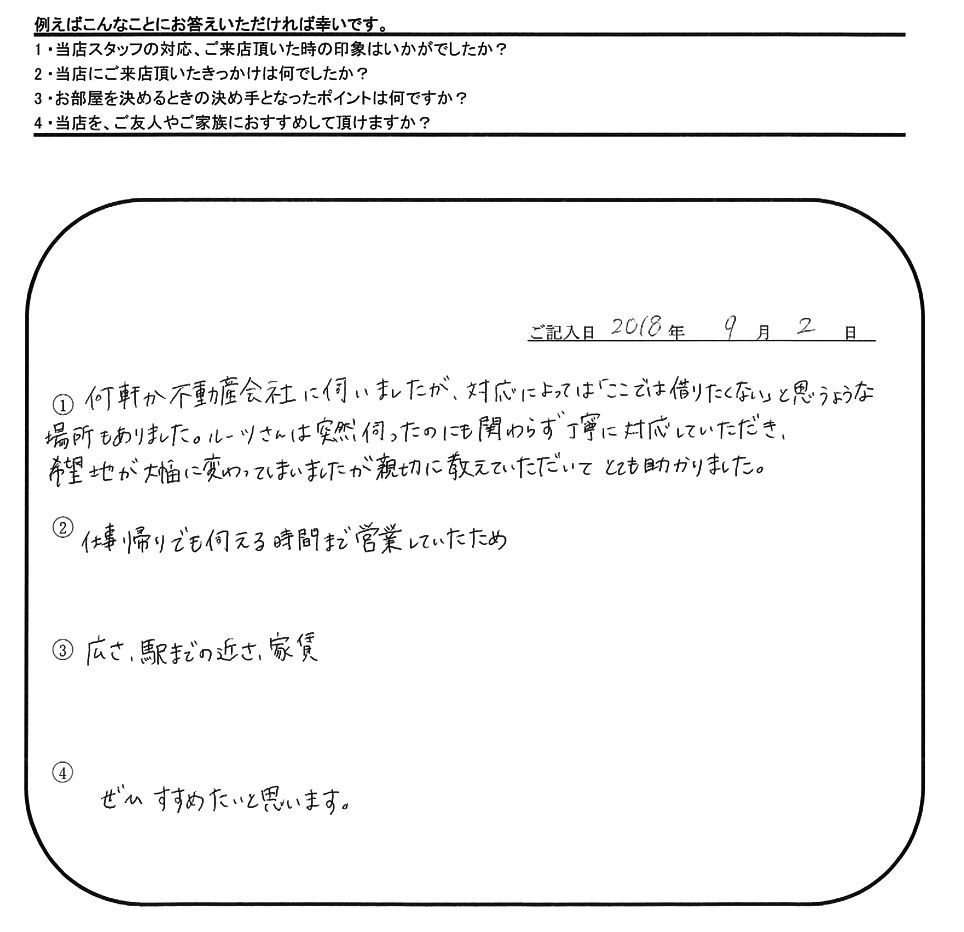 例えばこんなことにお答えいただければ幸いです。
1・当店スタッフの対応、ご来店頂いた時の印象はいかがでしたか？
2・当店にご来店頂いたきっかけは何でしたか？
3・お部屋を決めるときの決め手となったポイントは何ですか？
4・当店を、ご友人やご家族におすすめして頂けますか？
ご記入日 2018年 9月 2日
① 何軒か不動産会社に伺いましたが、対応によっては「ここでは借りたくない」と思うような
場所もありました。ルーツさんは突然伺ったのにも関わらず丁寧に対応していただき、
希望地が大幅に変わってしまいましたが親切に教えていただいてとても助かりました。
② 仕事帰りでも伺える時間まで営業していたため
③ 広さ、駅までの近さ、家賃
④
ぜひすすめたいと思います。